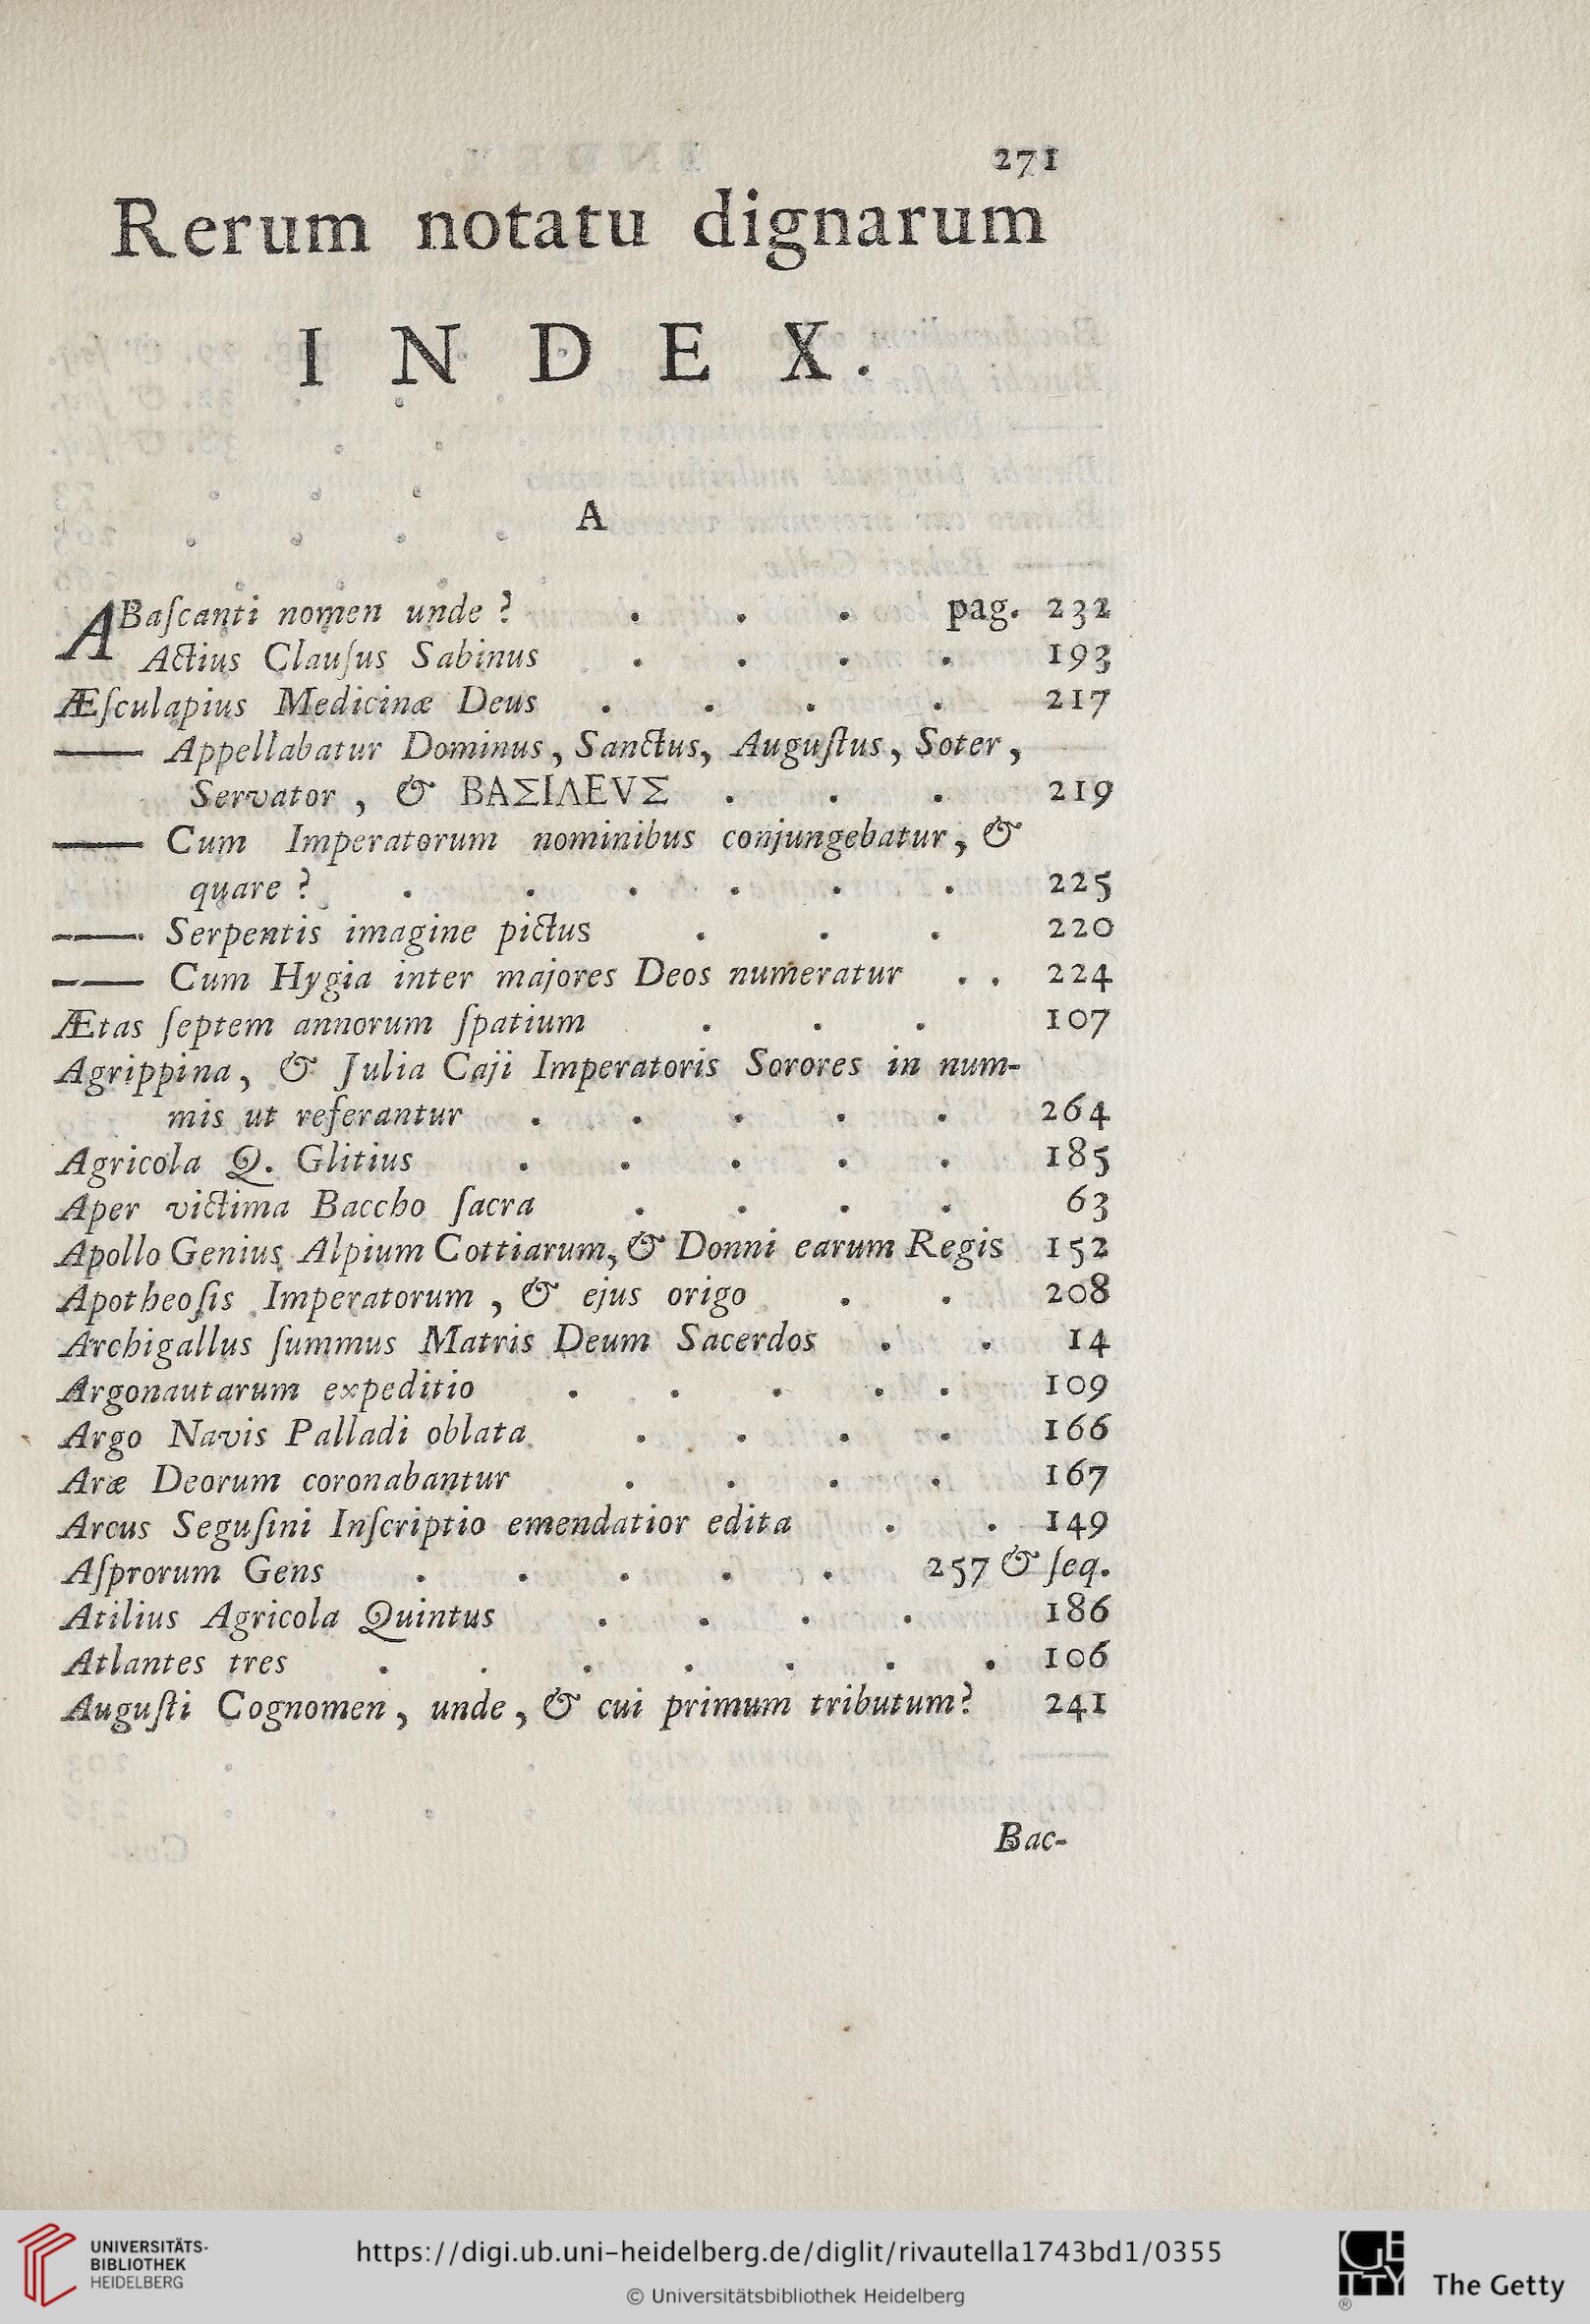 271
Rerum notatu dignarum
INDEX.
A
ABaſcanti nomen unde ? . . . pag. 232
Actius Clauſus Sabinus . . . . 193
Æſculapius Medicinæ Deus . . . . 217
—— Appellabatur Dominus, Sanctus, Auguſtus, Soter,
Servator , & ΒΑΣΙΛΕVΣ . . . 219
—— Cum Imperatorum nominibus conjungebatur, &
quare ? . . . . . . 225
—— Serpentis imagine pictus . . . 220
—— Cum Hygia inter majores Deos numeratur . . 224
Ætas ſeptem annorum ſpatium . . . 107
Agrippina, & Julia Caji Imperatoris Sorores in num-
mis ut referantur . . . . . 264
Agricola Q. Glitius . . . . . 185
Aper victima Baccho ſacra . . . . 63
Apollo Genius Alpium Cottiarum, & Donni earum Regis 152
Apotheoſis Imperatorum , & ejus origo . . 208
Archigallus ſummus Matris Deum Sacerdos . . 14
Argonautarum expeditio . . . . . 109
Argo Navis Palladi oblata . . . . 166
Aræ Deorum coronabantur . . . . 167
Arcus Seguſini Inſcriptio emendatior edita . . 149
Aſprorum Gens . . . . . 257 & ſeq.
Atilius Agricola Quintus . . . . 186
Atlantes tres . . . . . . . 106
Auguſti Cognomen, unde, & cui primum tributum? 241
Bac-
UNIVERSITÄTS-
BIBLIOTHEK
HEIDELBERG
https://digi.ub.uni-heidelberg.de/diglit/rivautella1743bd1/0355
© Universitätsbibliothek Heidelberg
GETTY
®
The Getty